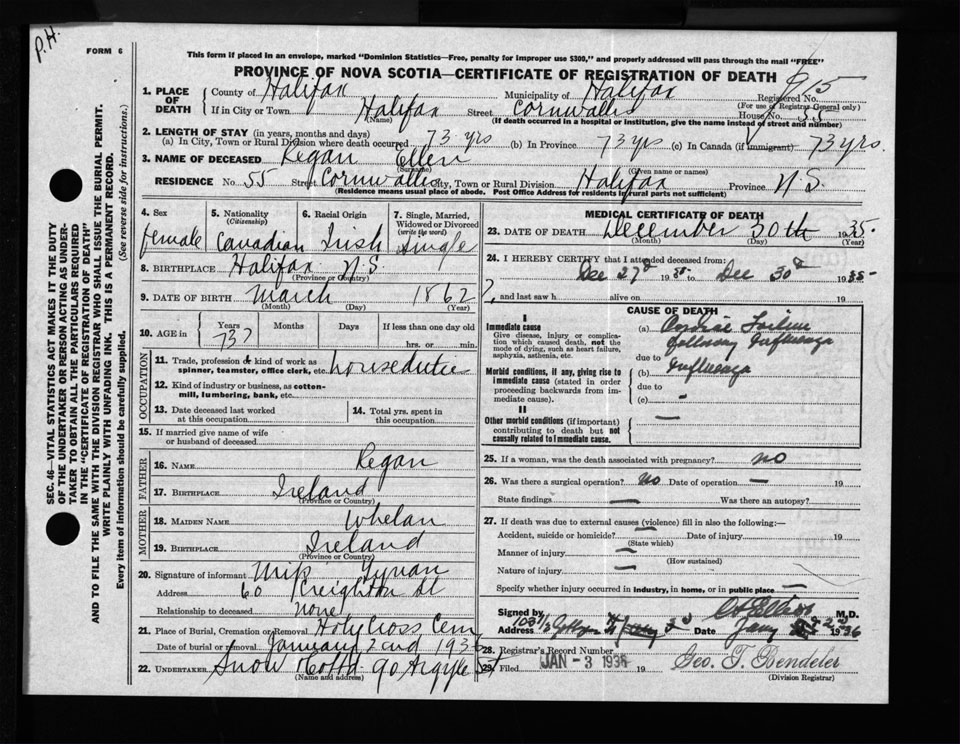 P.H.
FORM 6
This form if placed in an envelope, marked "Dominion Statistics—Free, penalty for improper use $300," and properly addressed will pass through the mail "FREE"
PROVINCE OF NOVA SCOTIA—CERTIFICATE OF REGISTRATION OF DEATH
1. PLACE OF DEATH County of Halifax Municipality of Halifax Registered No. 915
(For use of Registrar General only)
If in City or Town Halifax Street Cornwallis House No. 55
(Name) (If death occurred in a hospital or institution, give the name instead of street and number)
2. LENGTH OF STAY (in years, months and days)
(a) In City, Town or Rural Division where death occurred 73 yrs (b) In Province 73 yrs (c) In Canada (if immigrant) 73 yrs.
3. NAME OF DECEASED Regan Ellen
(Surname) (Given name or names)
RESIDENCE No. 55 Street Cornwallis City, Town or Rural Division Halifax Province N.S.
(Residence means usual place of abode. Post Office Address for residents in rural parts not sufficient)
4. Sex female
5. Nationality (Citizenship) Canadian
6. Racial Origin Irish
7. Single, Married, Widowed or Divorced (write the word) Single
8. BIRTHPLACE Halifax N.S.
(Province or Country)
9. DATE OF BIRTH March 1862
(Month) (Day) (Year)
10. AGE in Years 73 Months Days If less than one day old
hrs. or min.
OCCUPATION
11. Trade, profession or kind of work as spinner, teamster, office clerk, etc. houseduties
12. Kind of industry or business, as cotton-mill, lumbering, bank, etc.
13. Date deceased last worked at this occupation
14. Total yrs. spent in this occupation
15. If married give name of wife or husband of deceased
FATHER
16. NAME Regan
17. BIRTHPLACE Ireland
(Province or Country)
MOTHER
18. MAIDEN NAME Whelan
19. BIRTHPLACE Ireland
(Province or Country)
20. Signature of informant
Address 60 Creighton St
Relationship to deceased None
21. Place of Burial, Cremation or Removal Holy Cross Cem
Date of burial or removal January 2nd 1936
22. UNDERTAKER Snow Co Ltd 90 Argyle St
(Name and address)
MEDICAL CERTIFICATE OF DEATH
23. DATE OF DEATH December 30th 1935
(Month) (Day) (Year)
24. I HEREBY CERTIFY that I attended deceased from:
Dec 27 1935 to Dec 30 1935
and last saw h alive on 19
CAUSE OF DEATH
I
Immediate cause
Give disease, injury or complication which caused death, not the mode of dying, such as heart failure, asphyxia, asthenia, etc.
(a) Cardiac Failure
following Influenza
due to
Morbid conditions, if any, giving rise to immediate cause (stated in order proceeding backwards from immediate cause).
(b) Influenza
due to
(c) —
II
Other morbid conditions (if important) contributing to death but not causally related to immediate cause.
25. If a woman, was the death associated with pregnancy? no
26. Was there a surgical operation? No Date of operation —
State findings — Was there an autopsy?
27. If death was due to external causes (violence) fill in also the following:—
Accident, suicide or homicide? — Date of injury 19
(State which)
Manner of injury —
(How sustained)
Nature of injury —
Specify whether injury occurred in industry, in home, or in public place —
Signed by M.D.
Address Date Jany 2 1936
28. Registrar's Record Number
29. Filed JAN - 3 1936 19 Geo. T. Bendeler
(Division Registrar)
SEC. 46—VITAL STATISTICS ACT MAKES IT THE DUTY
OF THE UNDERTAKER OR PERSON ACTING AS UNDER-
TAKER TO OBTAIN ALL THE PARTICULARS REQUIRED
IN THE "CERTIFICATE OF REGISTRATION OF DEATH"
AND TO FILE THE SAME WITH THE DIVISION REGISTRAR WHO SHALL ISSUE THE BURIAL PERMIT.
WRITE PLAINLY WITH UNFADING INK. THIS IS A PERMANENT RECORD.
Every item of information should be carefully supplied. (See reverse side for instructions.)